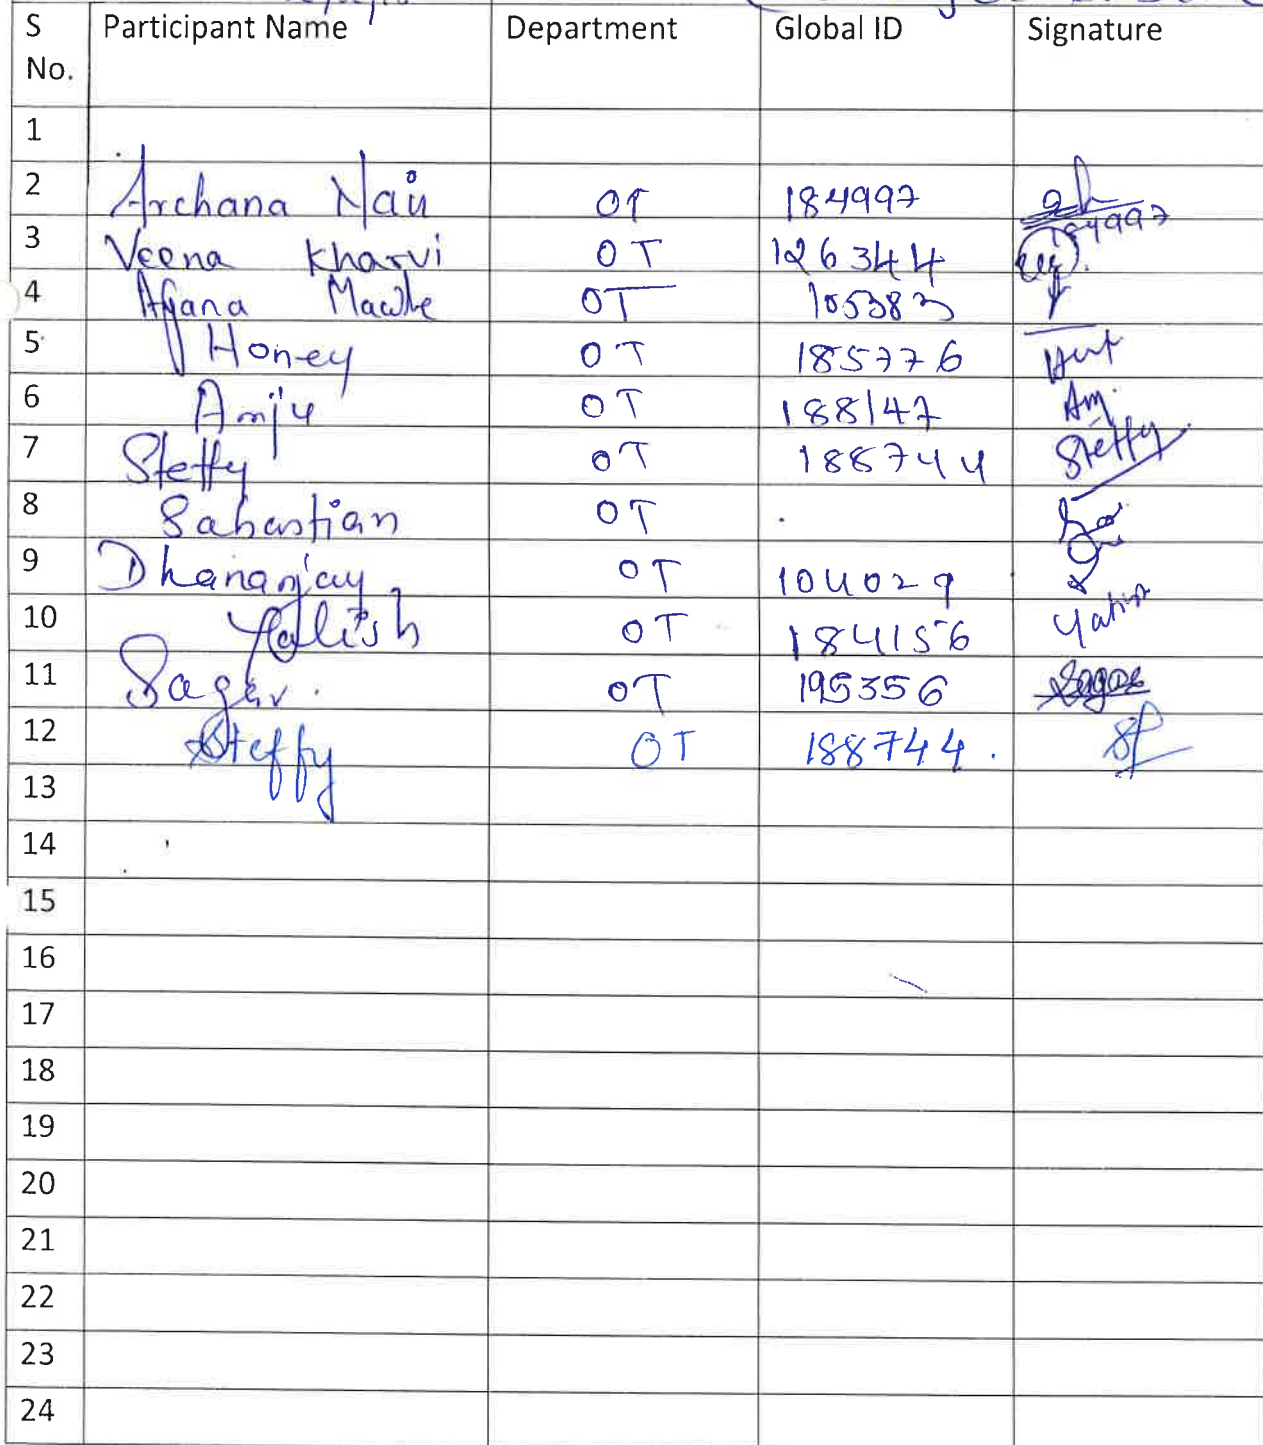 S No. Participant Name Department Global ID Signature
1
2 Archana Nair OT 184997 184997
3 Veena Kharvi OT 126344
4 OT 105383
5 Honey OT 185776
6 Anju OT 188147 Am.
7 Steffy OT 188744 Steffy
8 Sabastian OT
9 Dhananjay OT 104029
10 Yatish OT 184156 Yatish
11 Sagar. OT 195356 Sagar
12 Steffy OT 188744.
13
14
15
16
17
18
19
20
21
22
23
24